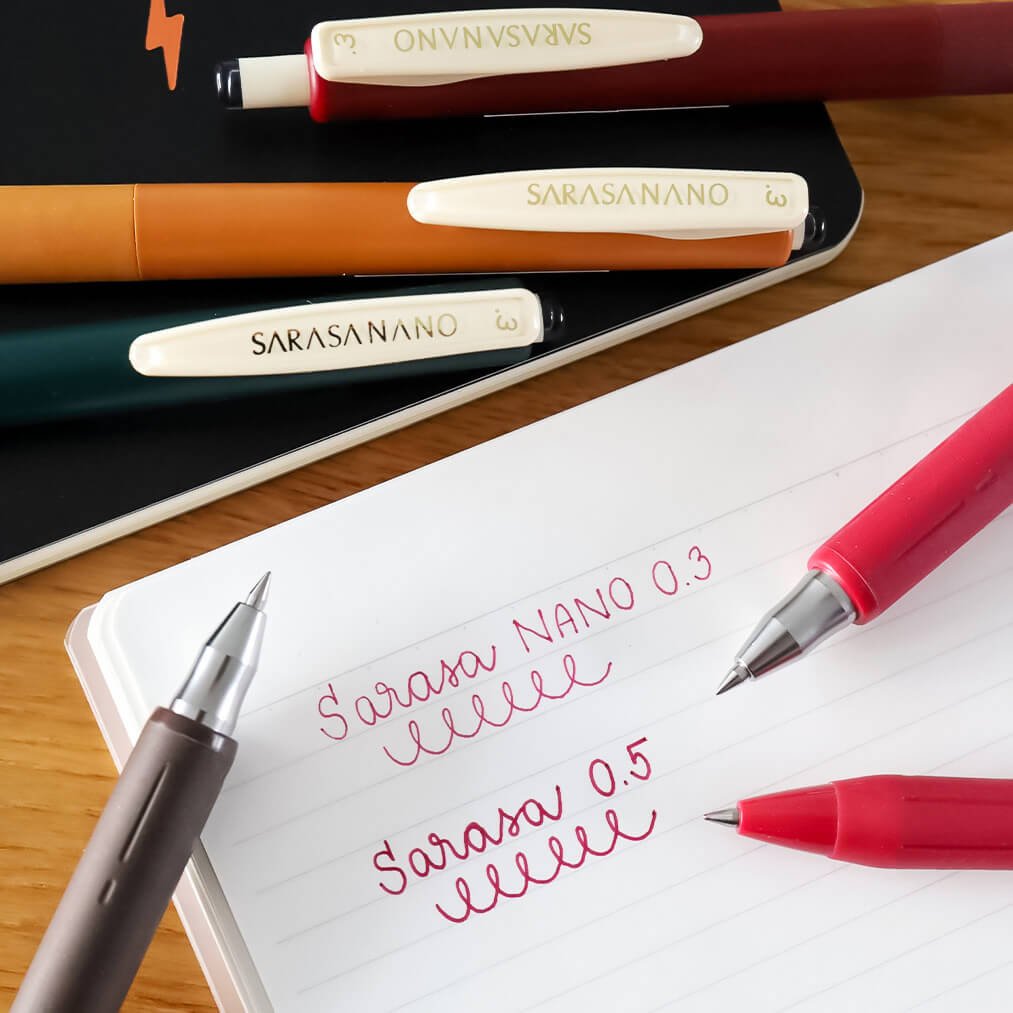 .3 SARASANANO
SARASANANO .3
SARASANANO .3
Sarasa NANO 0.3
Sarasa 0.5